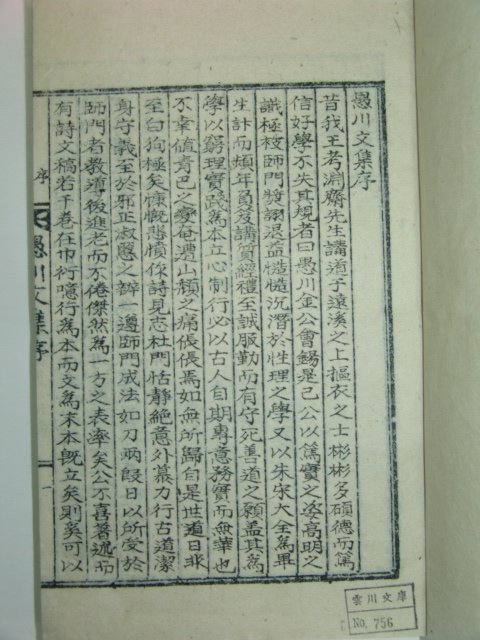 愚川文集序
昔我王考淵齋先生講道于遠溪之上摳衣之士彬彬多碩德而篤
信好學不失其規者曰愚川金公會錫是已公以篤實之姿高明之
識極被師門奬詡退益慥慥沉潛於性理之學又以朱宋大全爲畢
生計而頻年負笈講質經禮至誠服勤而有守死善道之願盖其爲
學以窮理實踐爲本立心制行必以古人自期專意務實而無華也
不幸値靑巴之變奄遭山頹之痛倀倀焉如無所歸自是世道日非
至白狗極矣慷慨悲憤作詩見志杜門恬靜絶意外慕力行古道潔
身守義至於邪正淑慝之辨一遵師門成法如刀兩段日以所受於
師門者敎導後進老而不倦傑然爲一方之表率矣公不喜著述而
有詩文稿若干卷在巾衍噫行爲本而文爲末本旣立矣則奚可以
愚川文集序
一
雲川文庫
No. 756